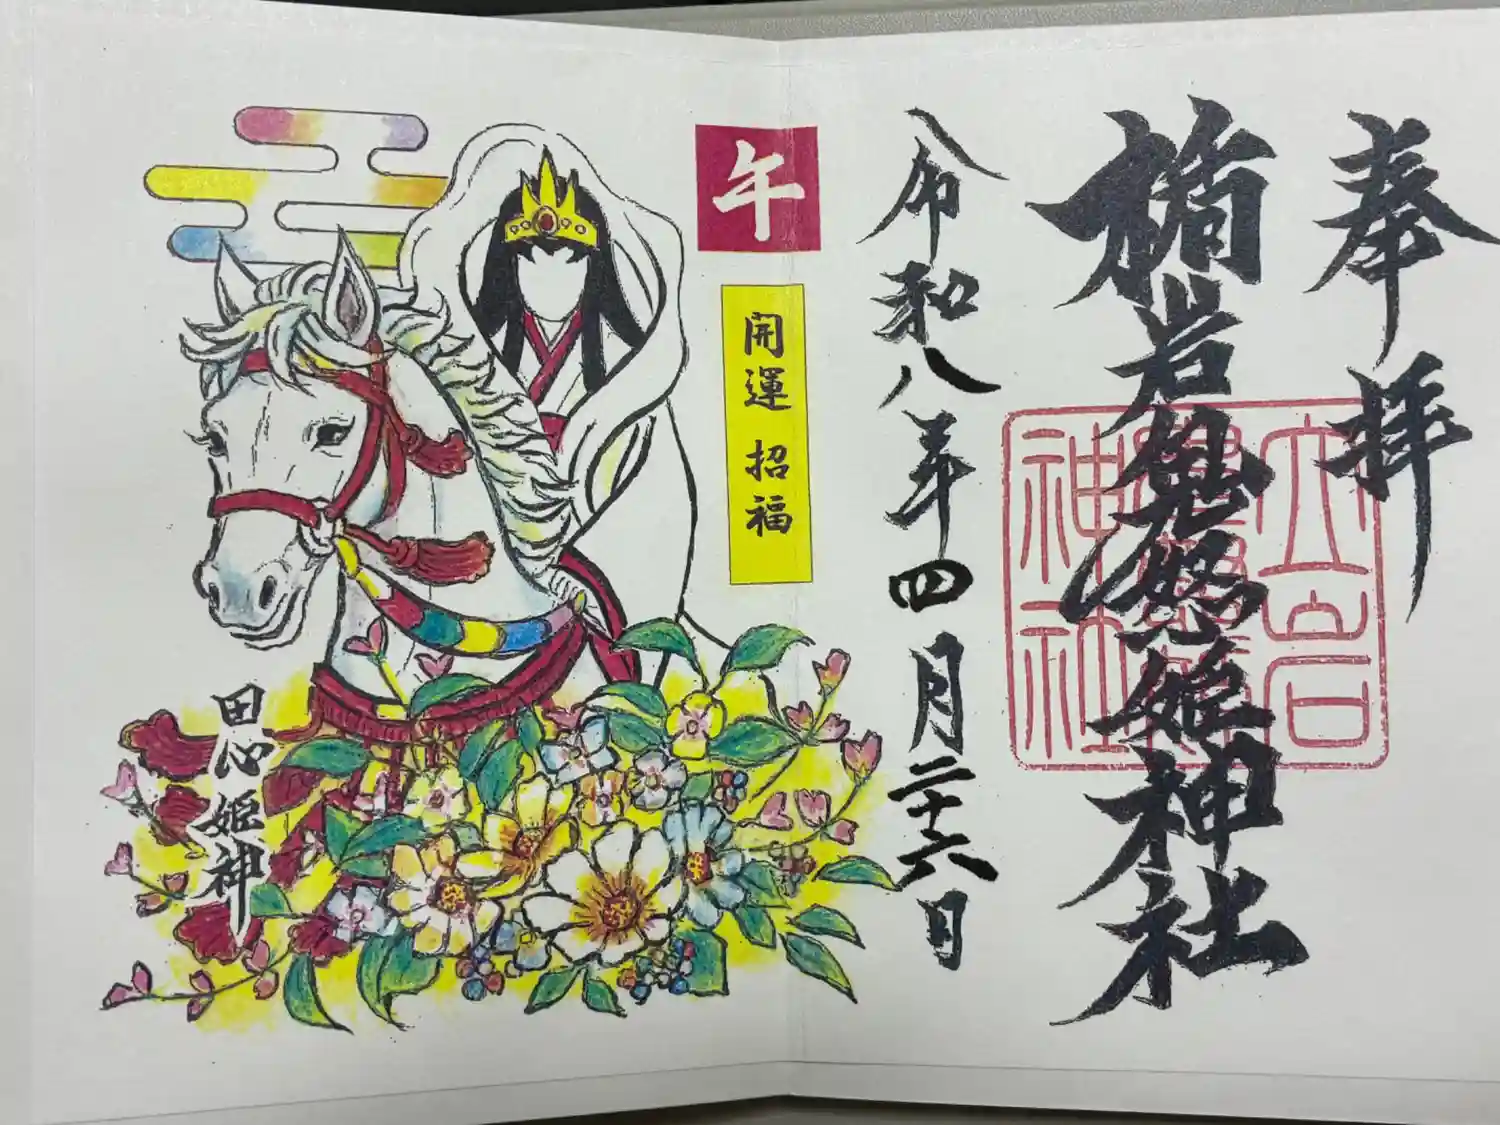 奉拝
楯岩鬼怒姫神社
立岩
神社
令和八年四月二十六日
午
開運 招福
田心姫神